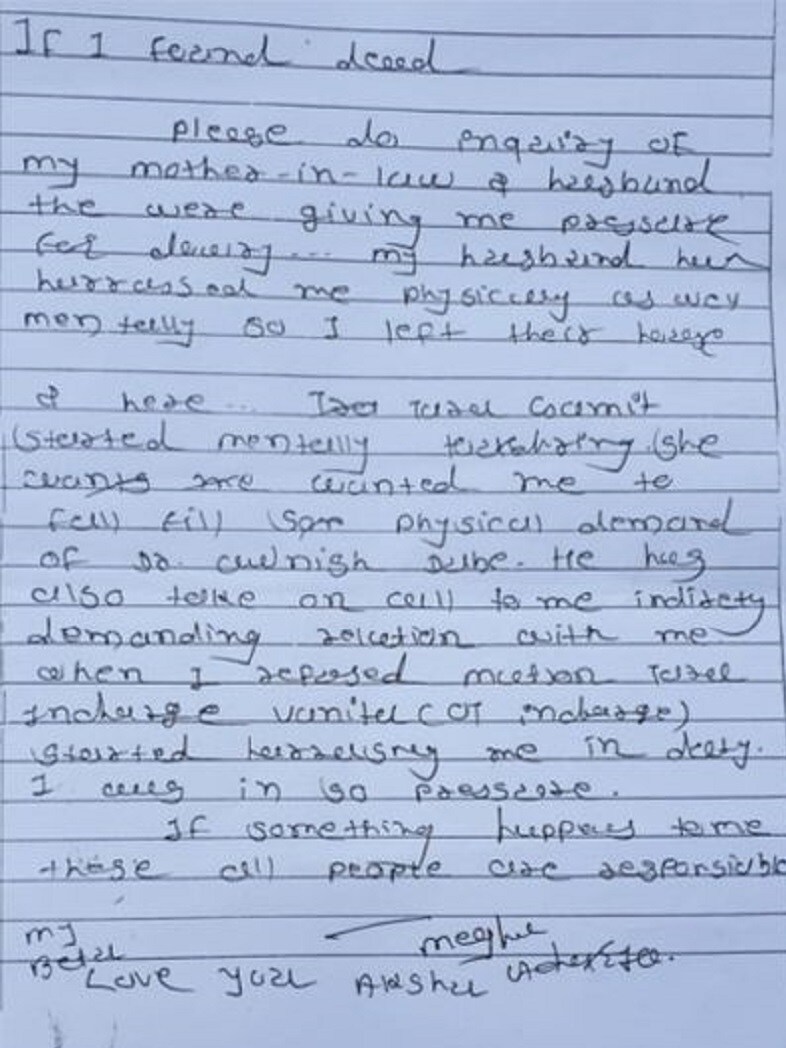 If I found dead
please do enquiry of
my mother-in-law & husband
the were giving me pressure
for dowery... my husband
hurrassed me physiccly as
mentally so I left their
& here...
started mentally she
wants me wanted me to
full fill physical demand
of Dr. He has
also take on call to me indirety
demanding relation with me
when I refused
Incharge vanita (OT incharge)
started me in duty.
I in so pressure.
If something happens to me
these all people are responsible
my
Beta
Love you Akshu
megha